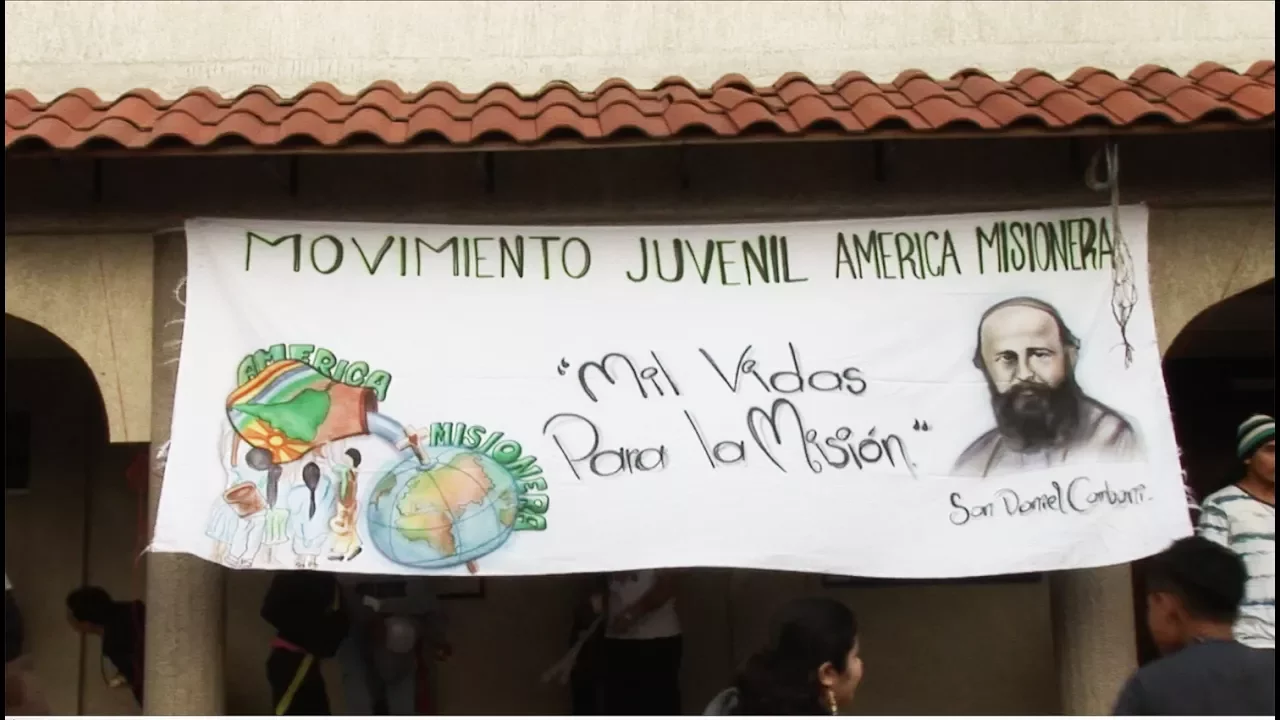 MOVIMIENTO JUVENIL AMERICA MISIONERA
AMERICA
MISIONERA
"Mil Vidas
Para la Misión."
San Daniel Comboni.